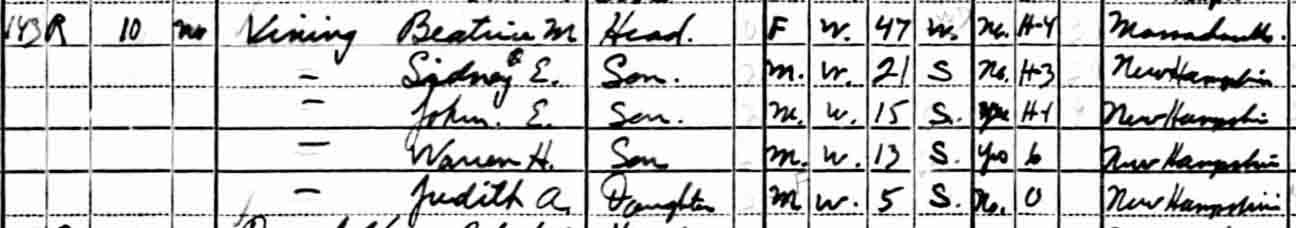 143 R 10 no Vining Beatrice M Head. F W. 47 W. No. H-4 Massachusetts.
— Sidney E. Son. M. W. 21 S No. H-3 New Hampshire
— John. E. Son. M. W. 15 S. Yes H-1 New Hampshire
— Warren H. Son M. W. 13 S. Yes 6 New Hampshire
— Judith A. Daughter M W. 5 S. No. 0 New Hampshire